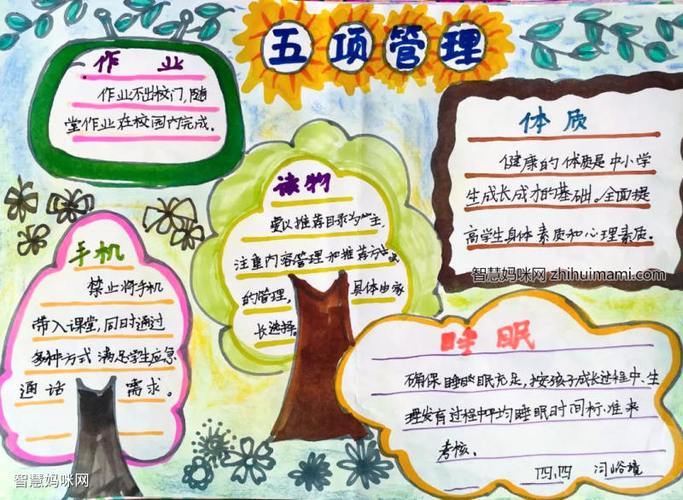 五项管理
作业
作业不出校门,随
堂作业在校园内完成。
体质
健康的体质是中小学
生成长成才的基础。全面提
高学生身体素质和心理素质。
智慧妈咪网 zhihuimami.com
读物
要以推荐目录为主,
注重内容管理和推荐方式
的管理,具体由家
长选择。
手机
禁止将手机
带入课堂,同时通过
多种方式满足学生应急
通话需求。
睡眠
确保睡眠充足,按孩子成长过程中、生
理发育过程中平均睡眠时间标准来
考核。
四.四
智慧妈咪网